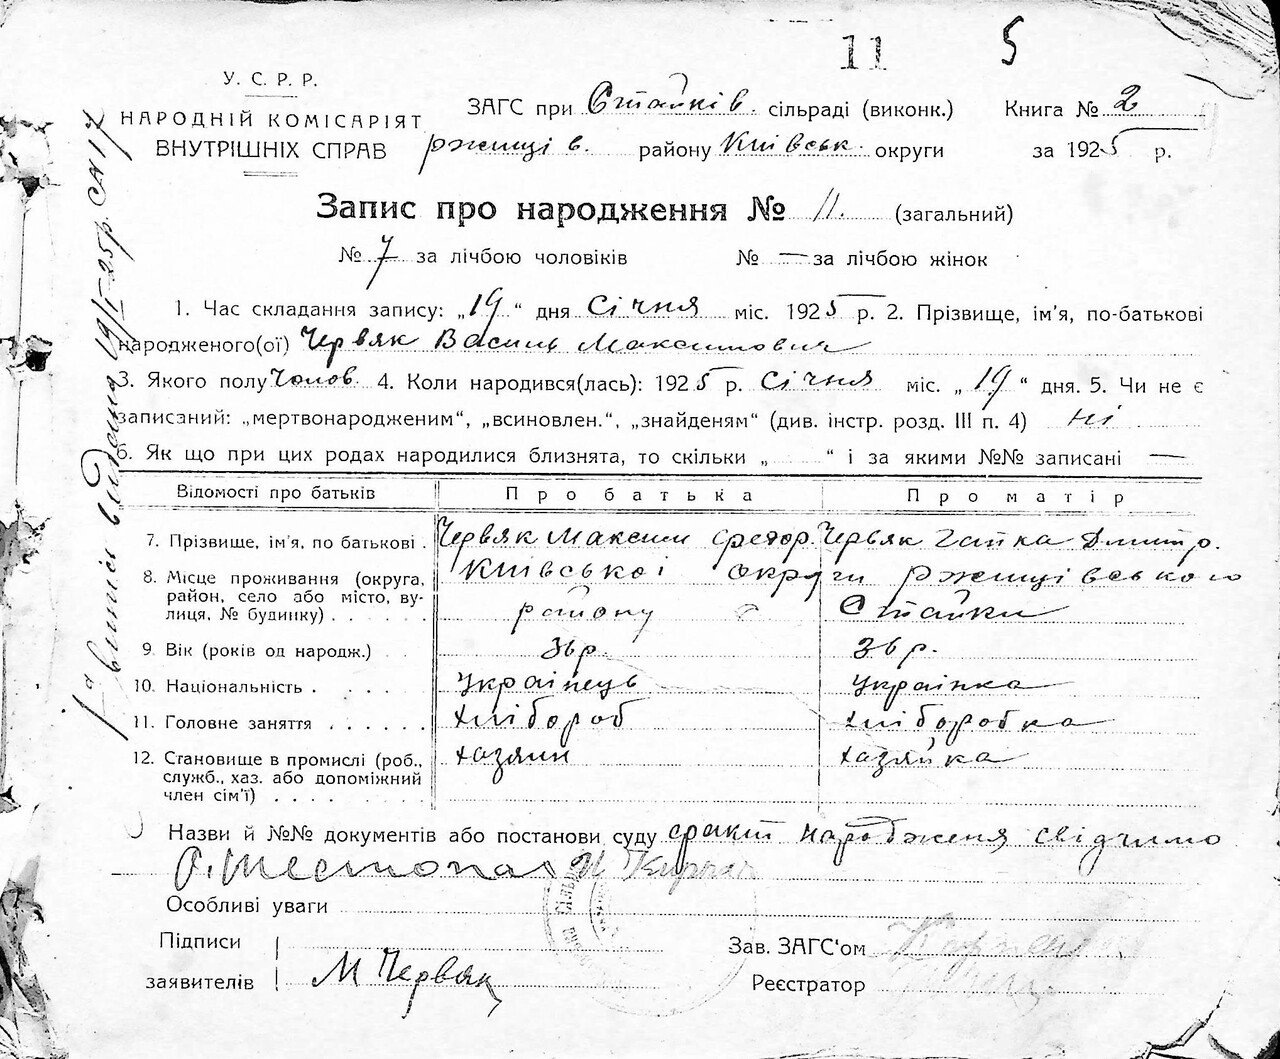 11 5
У. С. Р. Р.
НАРОДНІЙ КОМІСАРІЯТ
ВНУТРІШНІХ СПРАВ
ЗАГС при Стайків. сільраді (виконк.) Книга № 2
ржищів. району Київськ. округи за 1925 р.
Запис про народження № 11. (загальний)
№ 7 за лічбою чоловіків № — за лічбою жінок
1. Час складання запису: „19“ дня Січня міс. 1925 р. 2. Прізвище, ім’я, по-батькові
народженого(ої) Червяк Василь Максимович
3. Якого полу Чолов. 4. Коли народився(лась): 1925 р. Січня міс. „19“ дня. 5. Чи не є
записаний: „мертвонародженим“, „всиновлен.“, „знайденям“ (див. інстр. розд. III п. 4) ні
6. Як що при цих родах народилися близнята, то скільки „ “ і за якими №№ записані —
Відомості про батьків Про батька Про матір
7. Прізвище, ім’я, по батькові . Червяк Максим Федор. Червяк Гапка Дмитр.
8. Місце проживання (округа, Київської округи ржищівського
район, село або місто, ву-
лиця, № будинку) . . . . . району с Стайки
9 Вік (років од народж.) 3 р. 3 р.
10. Національність . . . . Українець Українка
11. Головне заняття . . . . . хлібороб хліборобка
12. Становище в промислі (роб., хазяин хазяйка
служб., хаз. або допоміжний
член сім’ї) . . . . . . . .
Назви й №№ документів або постанови суду факт народженя свідчимо
Особливі уваги
Підписи
заявителів М Червяк
Зав. ЗАГС‘ом
Реєстратор